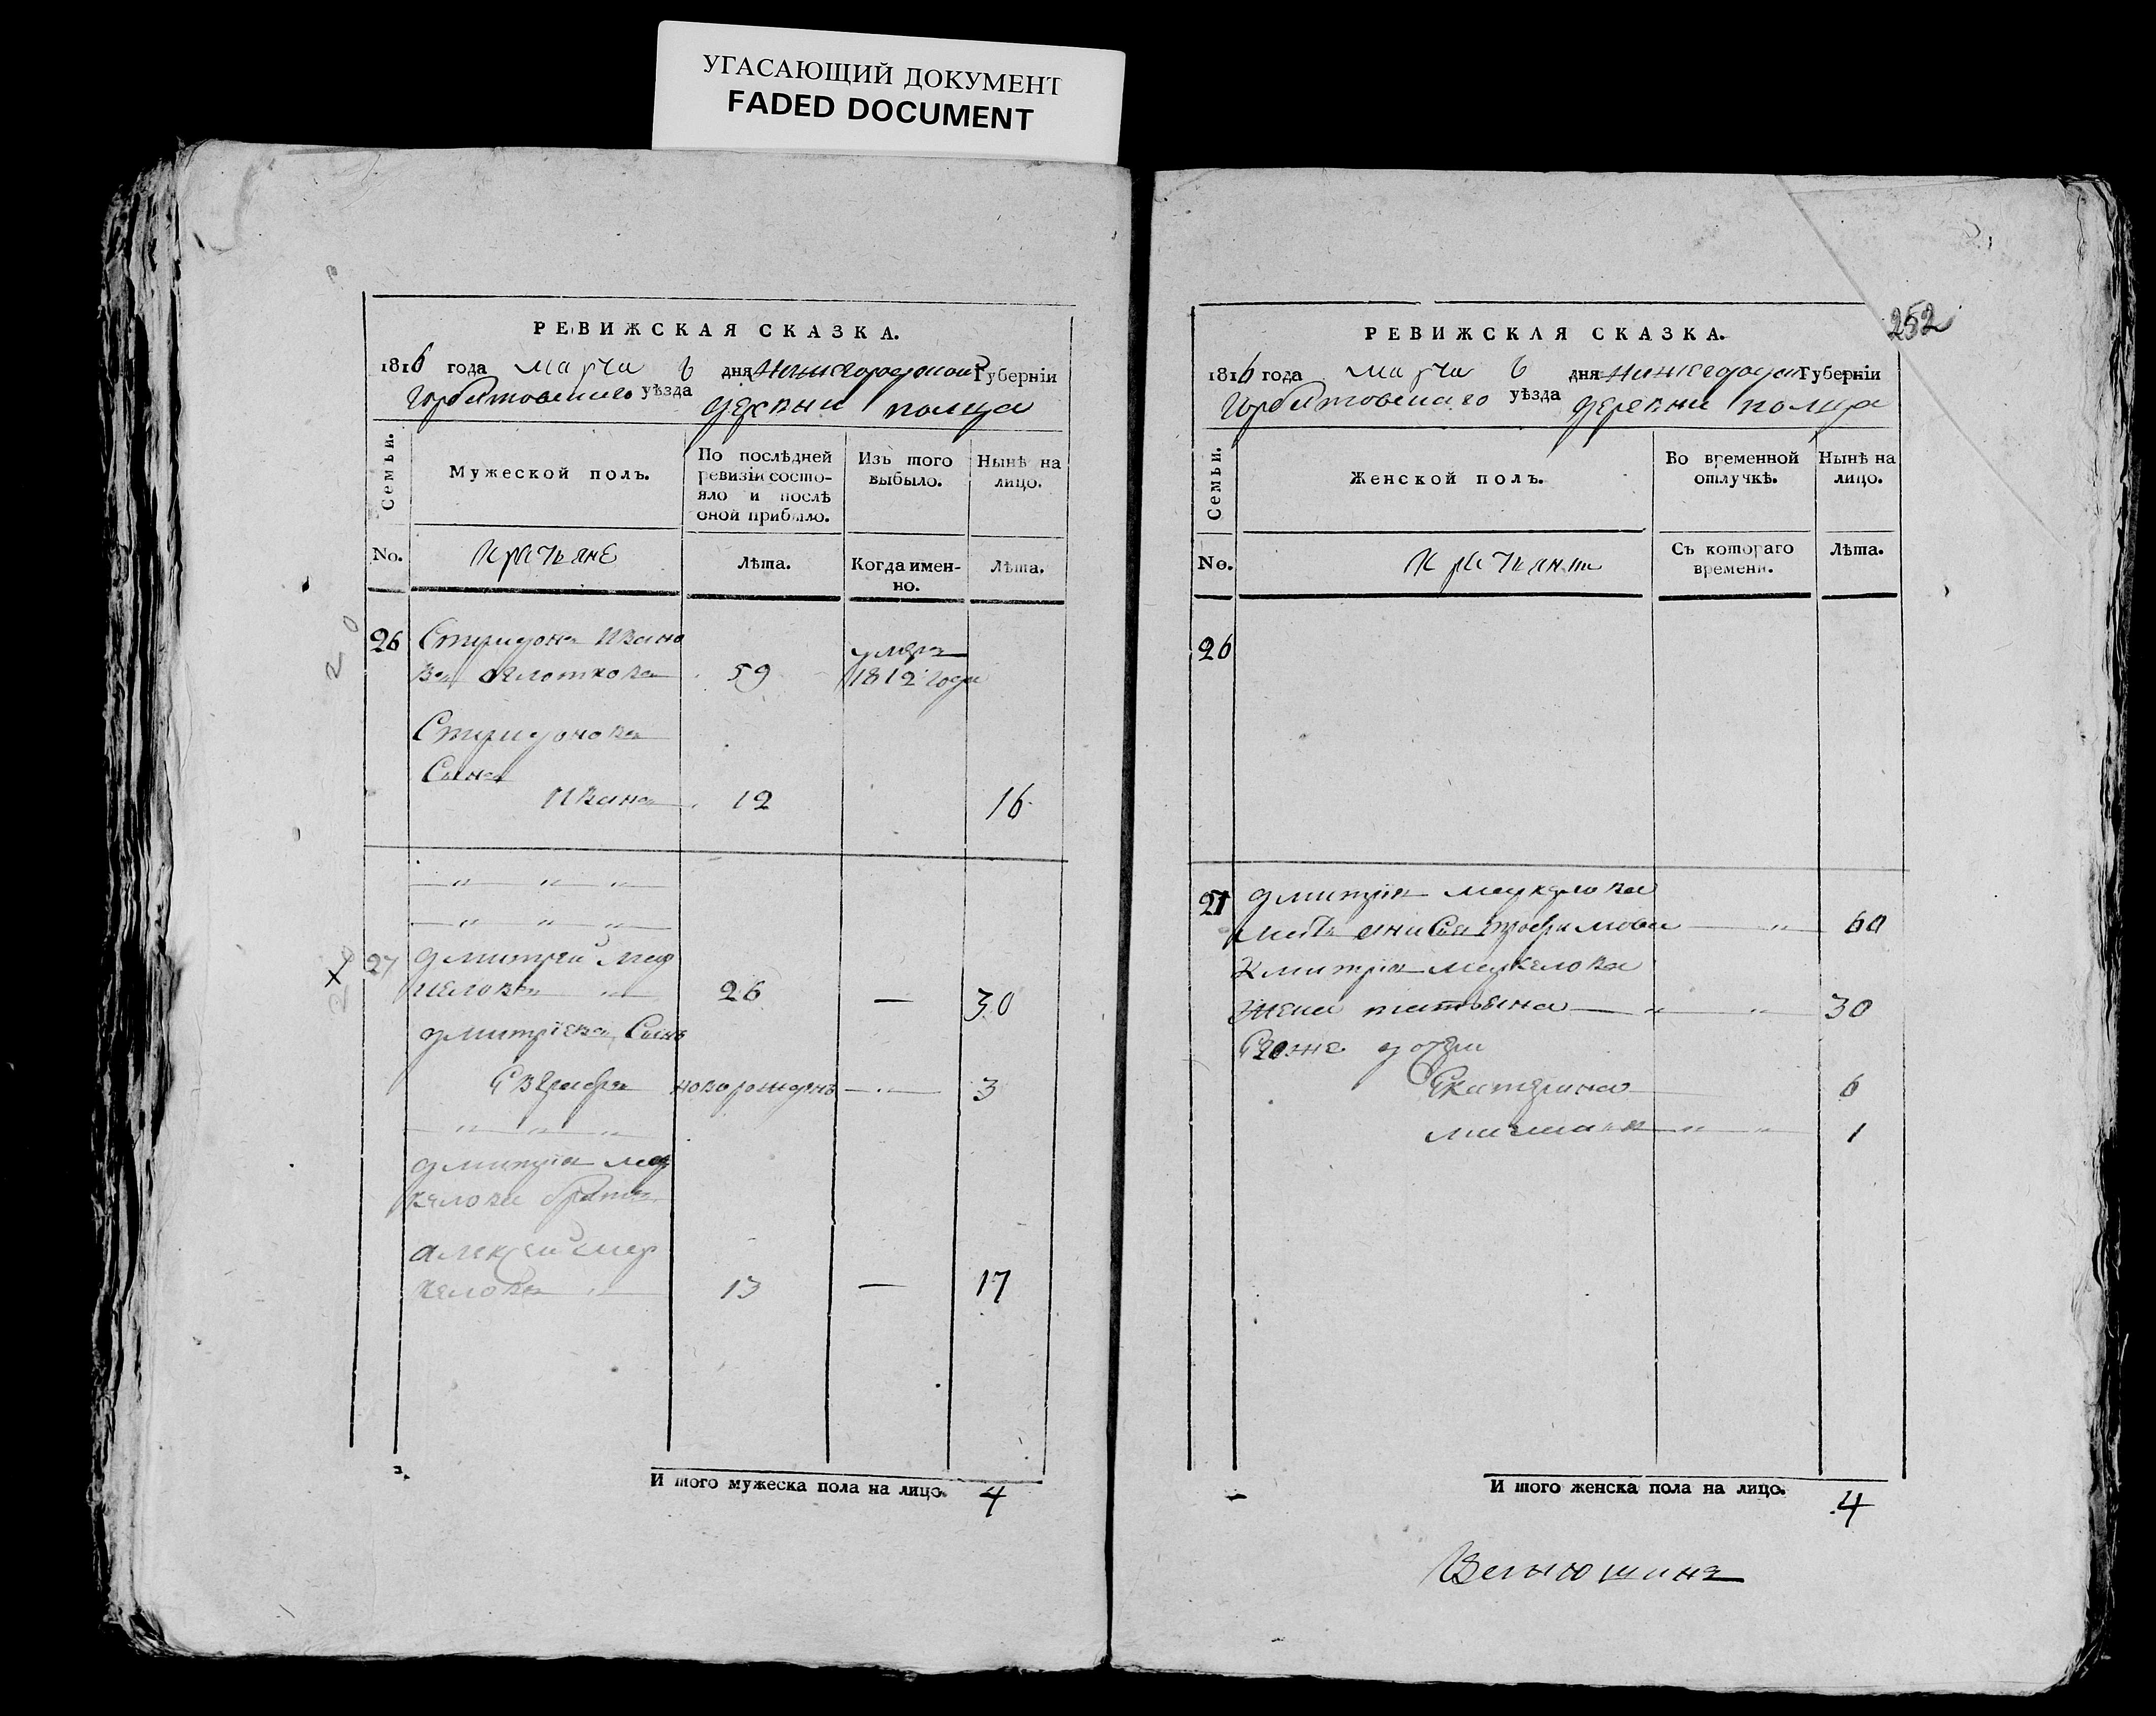 УГАСАЮЩИЙ ДОКУМЕНТ
FADED DOCUMENT
РЕВИЖСКАЯ СКАЗКА.
1816 года марта 6 дня Нижегородской Губерніи
Горбатовскаго уѣзда деревни полца
Семьи.
Мужеской полъ.
По послѣдней ревизіи состояло и послѣ оной прибыло.
Изъ того выбыло.
Нынѣ на лицо.
No.
Лѣта.
Когда именно.
Лѣта.
26 Спиридонъ Ивано
въ 59 умеръ 1812 года
Спиридоновъ
Сынъ
Иванъ 12 16
27 дмитрей мер
келовъ 26 — 30
дмитріевъ Сынъ
новорожденъ — 3
дмитрія мер
келова братъ
алексей мер
келовъ 13 — 17
И того мужеска пола на лицо. 4
252
РЕВИЖСКАЯ СКАЗКА.
1816 года марта 6 дня Нижегородской Губерніи
Горбатовскаго уѣзда деревни полца
Семьи.
Женской полъ.
Во временной отлучкѣ.
Нынѣ на лицо.
No.
Съ котораго времени.
Лѣта.
26
27 дмитрія меркелова
мать анисья трофимова 60
дмитрія меркелова
жена татьяна 30
Евоже дочери
Екатерина 6
1
И того женска пола на лицо. 4